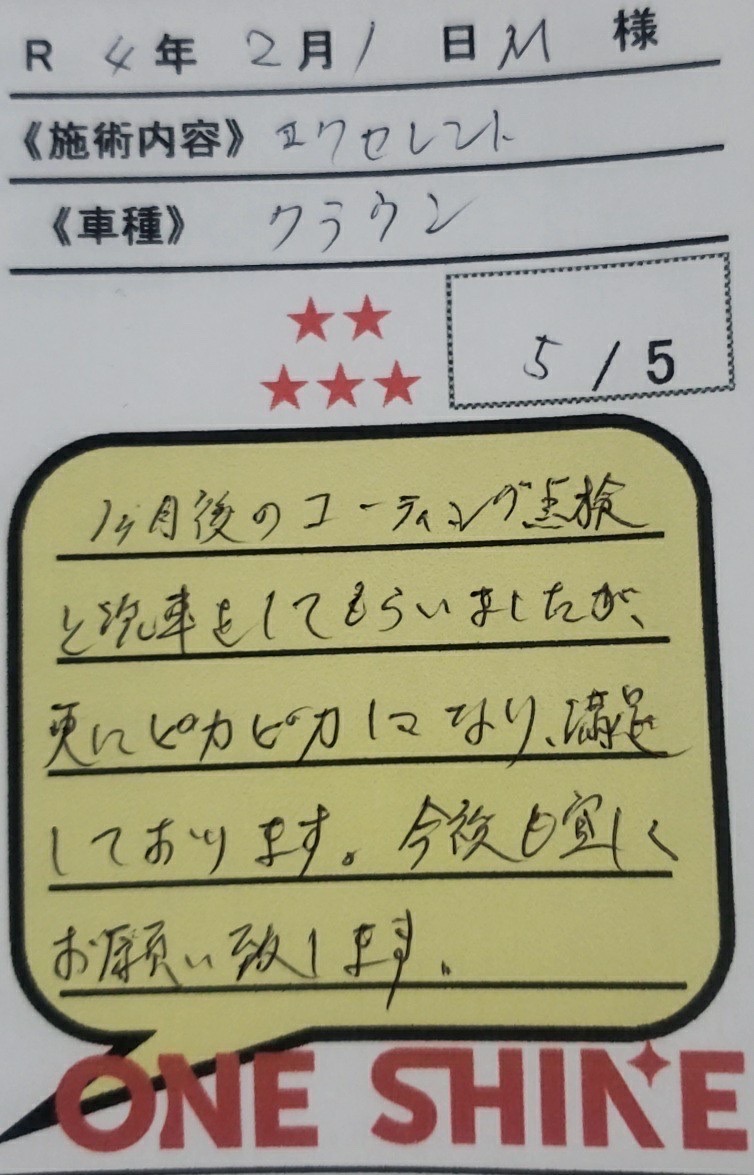 R 4年 2月 1日 M 様
《施術内容》 エクセレント
《車種》 クラウン
5/5
1ヶ月後のコーティング点検
と洗車をしてもらいましたが、
更にピカピカになり、満足
しております。今後も宜しく
お願い致します。
ONE SHINE